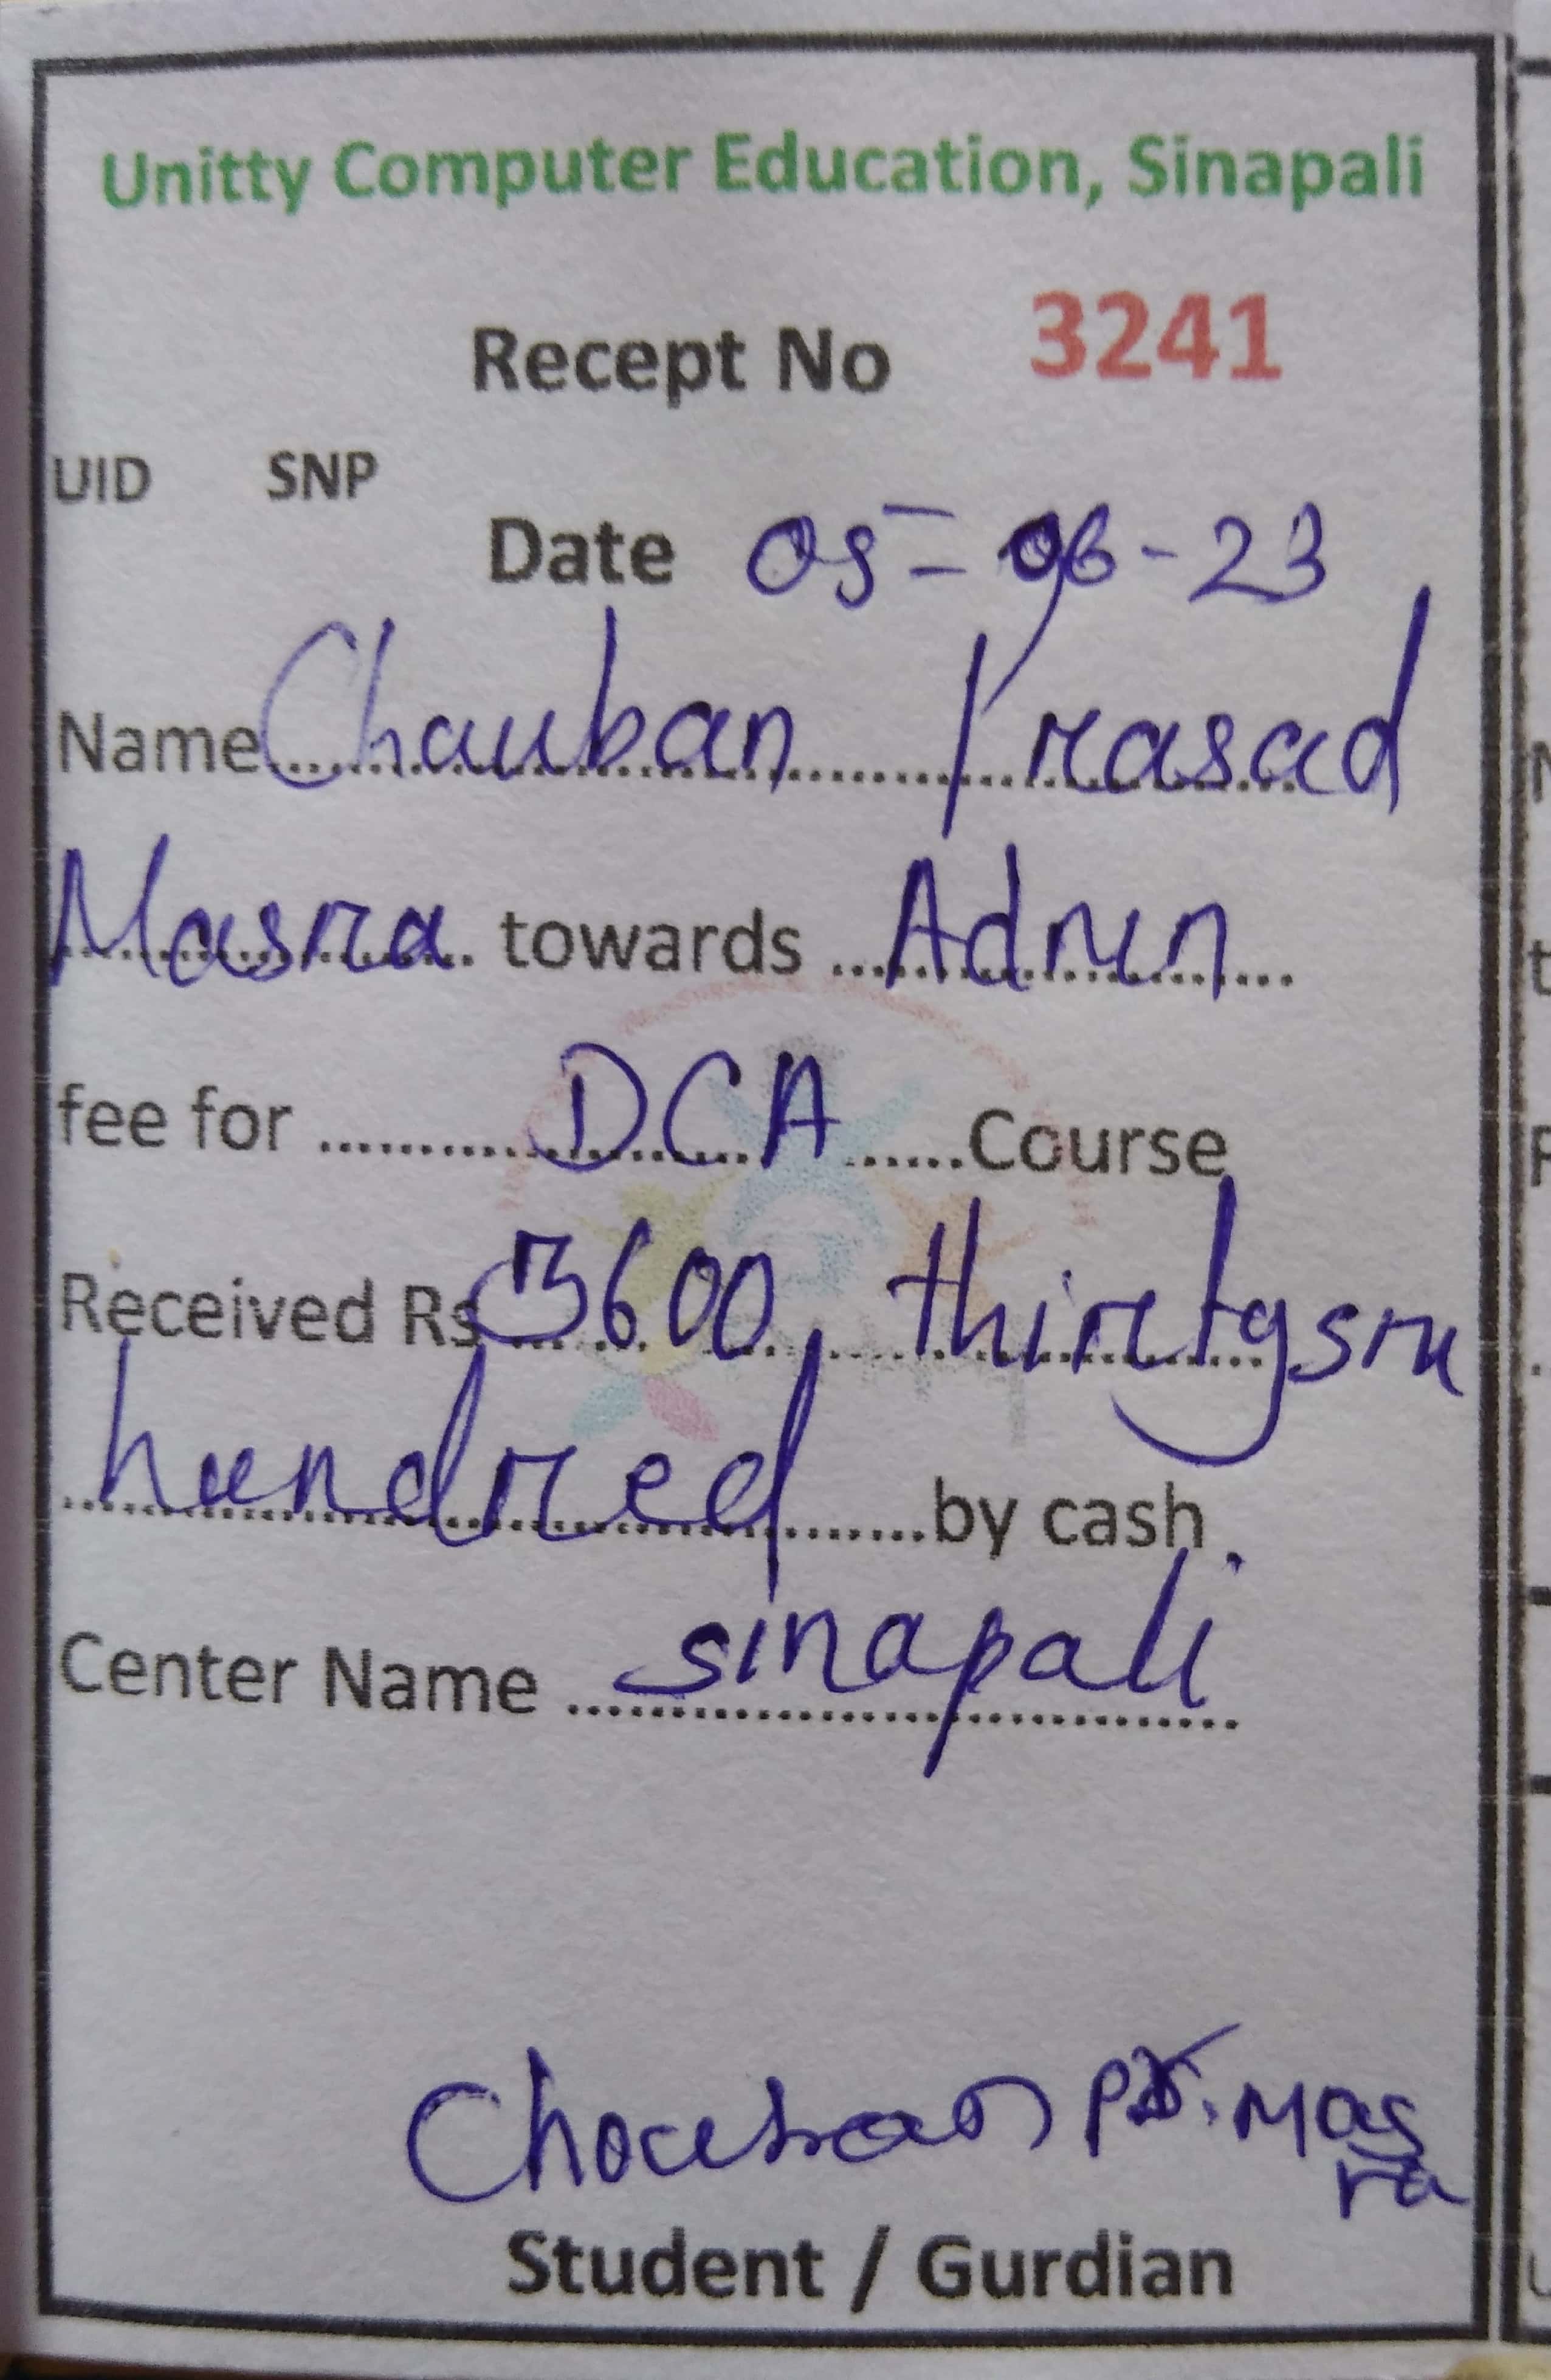 Unitty Computer Education, Sinapali
Recept No 3241
UID SNP
Date 05-06-23
Name Chauban Prasad
Masra towards Admn
fee for DCA Course
Received Rs 3600 thirtysix
hundred by cash
Center Name sinapali
Chauban Pr. Mas
ra
Student / Gurdian